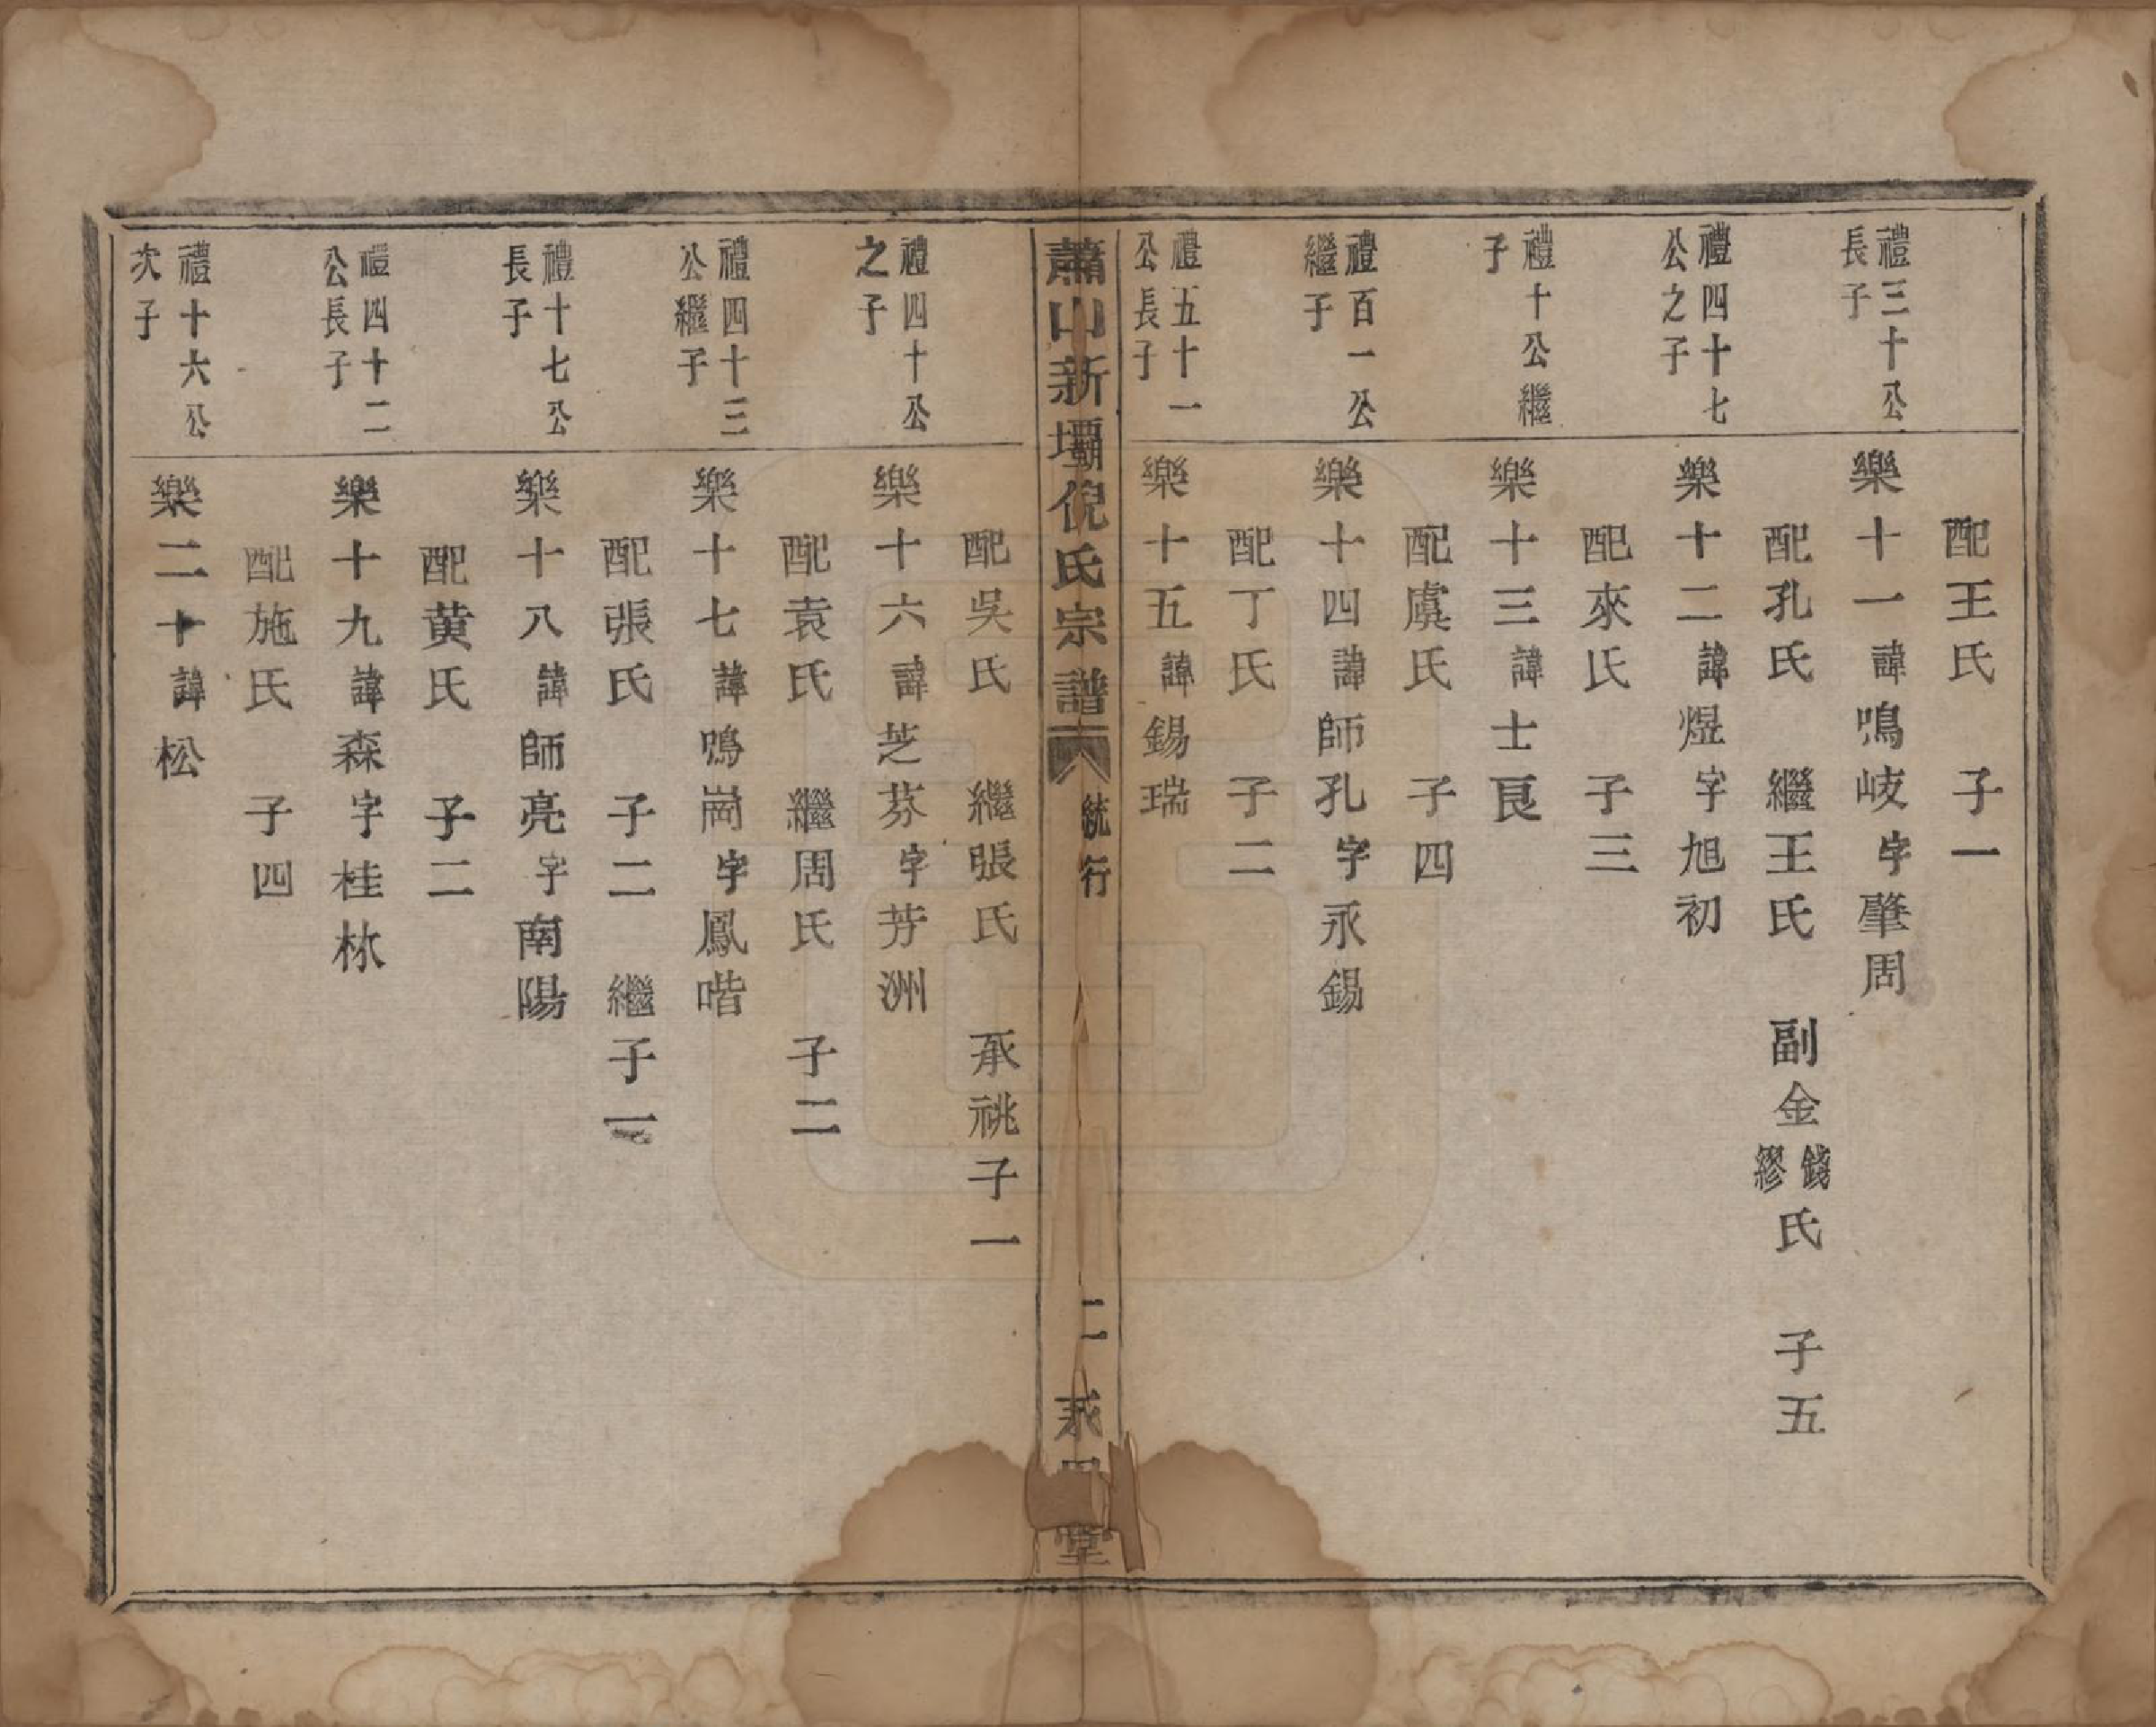 配王氏　子一
禮三十公長子
樂十一諱鳴岐字肇周
配孔氏　繼王氏　副金錢繆氏　子五
禮四十七公之子
樂十二諱煜字旭初
配來氏　子三
禮十公繼子
樂十三諱士良
配虞氏　子四
禮百一公繼子
樂十四諱師孔字永錫
配丁氏　子二
禮五十一公長子
樂十五諱錫瑞
蕭山新壩倪氏宗譜　統行　二　承　堂
配吳氏　繼張氏　承祧子一
禮四十公之子
樂十六諱芝芬字芳洲
配袁氏　繼周氏　子二
禮四十三公繼子
樂十七諱鳴崗字鳳喈
配張氏　子二　繼子一
禮十七公長子
樂十八諱師亮字南陽
配黄氏　子二
禮四十二公長子
樂十九諱森字桂林
配施氏　子四
禮十六公次子
樂二十諱松